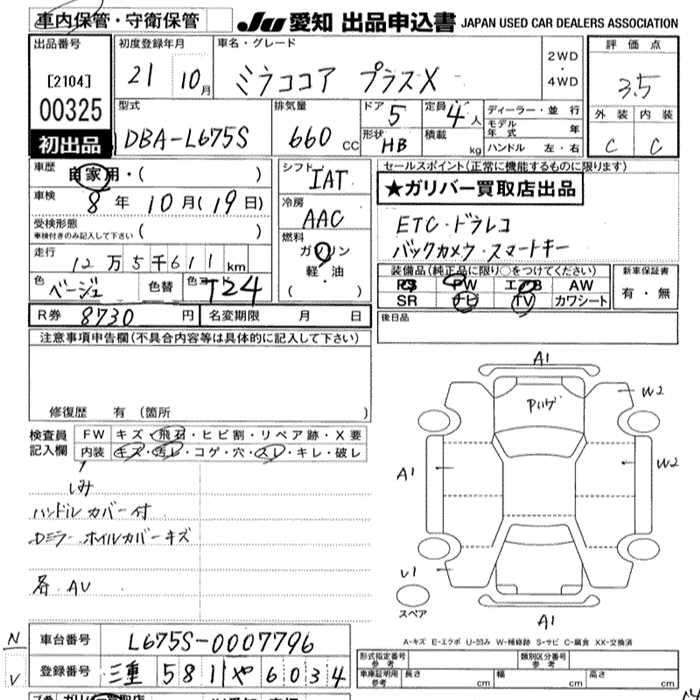 車内保管・守衛保管
JU 愛知 出品申込書 JAPAN USED CAR DEALERS ASSOCIATION
出品番号
[2104]
00325
初出品
初度登録年月
21 10月
車名・グレード
ミラココア プラスX
2WD
・
4WD
評価点
3.5
外装 内装
C C
型式
DBA-L675S
排気量
660 CC
ドア
5
定員
4人
形状
HB
積載
kg
ディーラー・並行
モデル年式 年
ハンドル 左・右
車歴
自家用・( )
車検
8年10月(19日)
受検形態
車検付きのみ記入して下さい ( )
走行
12万5千611km
色
ベージュ
色替
色コード
T24
シフト
IAT
冷房
AAC
燃料
ガソリン
軽・油
( )
セールスポイント(正常に機能するものに限ります)
★ガリバー買取店出品
ETC・ドラレコ
バックカメラ・スマートキー
装備品(純正品に限り○をつけてください)
PS PW エアB AW
SR ナビ TV カワシート
新車保証書
有・無
R券 8730円
名変期限 月 日
後日品
注意事項申告欄(不具合内容等は具体的に記入して下さい)
修復歴 有(箇所 )
検査員記入欄
FW キズ・飛石・ヒビ割・リペア跡・X要
内装 キズ・汚レ・コゲ・穴・スレ・キレ・破レ
シミ
ハンドルカバー付
Dミラー ホイルカバーキズ
各AV
A1
Pハゲ
W2
A1
W2
U1
スペア
A1
A-キズ E-エクボ U-凹み W-補修跡 S-サビ C-腐食 XX-交換済
N
V
車台番号 L675S-0007796
登録番号 三重 581や6034
形式指定番号
参考
類別区分番号
参考
車庫証明用
参考
長さ cm 幅 cm 高さ cm